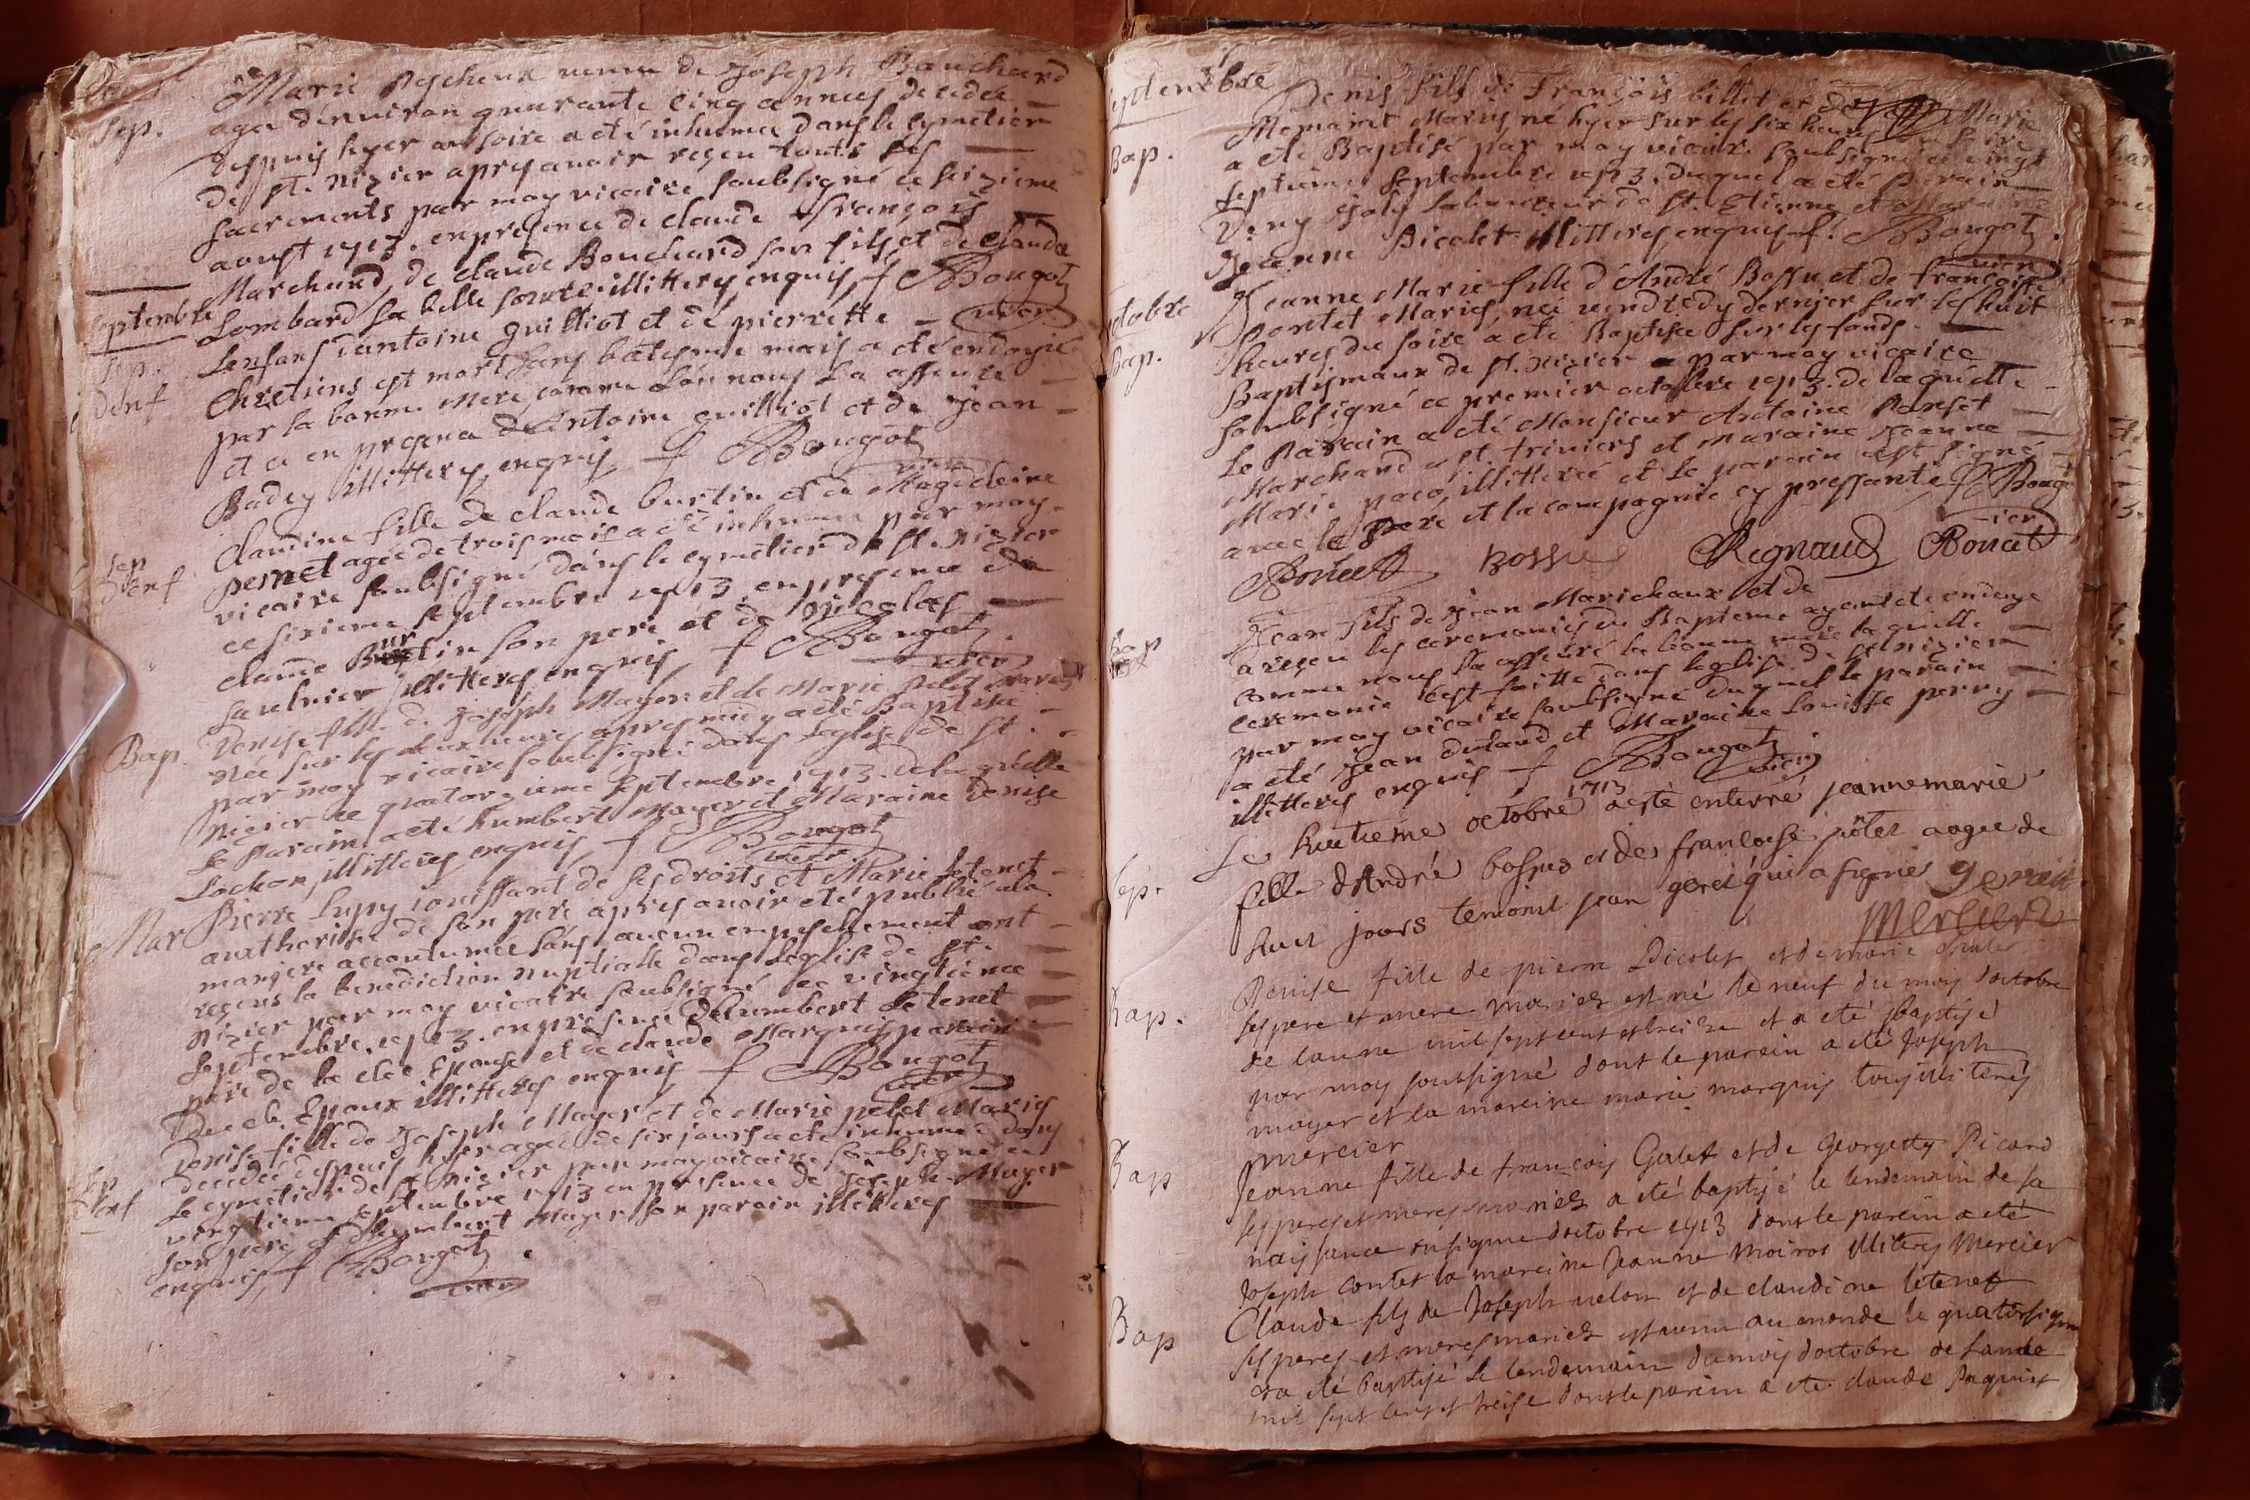 Marie Pescheux veuve de Joseph Bouchard
Sep. agée d'environ quarante cinq années decedée
despuis hyer au soire a eté inhumée dans le cymetier
de st. nizier apres avoir reçeu touts ses
sacrements par moy vicaire soubsigné ce seizieme
aoust 1713. en presence de claude françois
Marchand, de claude Bouchard son fils et de claude
Septembre Lombard sa belle soeur illitteres enquis f Bougot
vicr
Sep. L'enfans d'antoine guilliot et de pierrette
D'enf chrestiens est mort sans batesme mais a eté endoyé
par la bonne mere comme l'on nous l'a asseuré
et ce en presence d'Antoine guilliot et de Jean
Badey illitteres enquis f Bougot
vicr
Sep claudine fille de claude burtin et de Magdeleine
D'enf pernet agée de trois mois a eté inhumée par moy
vicaire soubsigné dans le cymetier de st. nizier
ce sixieme septembre 1713. en presence de
claude Burtin son pere et de nicolas
saulnier illitteres enquis f Bougot
vicr
Bap. Denise fille de Joseph Mayer et de Marie pelet mariés
née sur les deux heures apres midy a eté baptisée
par moy vicaire soubsigné dans l'eglise de st.
nizier ce quatorzieme septembre 1713. de laquelle
le Parain a eté humbert Mayer et Maraine Denise
Lochon, illitteres enquis f Bougot
vicr.
Mar Pierre Lupy jouissant de ses droits et Marie letenet
authorisée de son pere apres avoir eté publié a la
maniere accoutumée sans aucun empeschement ont
reçeus la benediction nuptialle dans l'eglise de st.
nizier par moy vicaire soubsigné ce vingtieme
septembre 1713. en presence d'humbert letenet
pere de la dte Epouse et de claude Marquis parain
Dud. Epoux illitteres enquis f Bougot
vicr
Sep Denise fille de Joseph Mayer et de Marie pelet Mariés
D'enf decedée despuis hyer agée de six jours a eté inhumée dans
le cymetier de st nizier par moy vicaire soubsigné ce
vingtieme septembre 1713 en presence de Joseph Mayer
son pere et d'humbert Mayer son parain illitteres
enquis f Bougot
vicr
Septembre
Denis fils de François billet et de Marie
Bap. Momairet Mariés né hyer sur les six heures du soire
a eté Baptisé par moy vicaire soubsigné ce vingt
septieme septembre 1713. duquel a eté Parain
Deny Joly laboureur de st. Etienne et Maraine
Jeanne Picolet illitteres enquis f. Bougot.
vicr
octobre Jeanne Marie fille d'André Bossu et de françoise
Bap. pontet Mariés, née vendredy dernier sur les huit
heures du soire a eté Baptisée sur les fonds
Baptismaux de st. nizier par moy vicaire
soubsigné ce premier octobre 1713. de laquelle
le Parain a eté Monsieur Antoine Ponset
Marchand a st. triviers et Maraine Jeanne
Marie paco, illitterée et le parain est signé
avec le pere et la compagnie cy pressante f Bougot
vicr
Poncet Bossu Regnaud Poncet
Bap Jean fils de Jean Marichaux et de
a reçeu les ceremonies du Bapteme ayant eté endoyé
comme nous l'a asseuré la bonne mere laquelle
ceremonie c'est faitte dans l'eglise de st nizier
par moy vicaire soubsigné duquel le parain
a eté Jean dutaud et Maraine Louisse perry
illitteres enquis f Bougot
vicr
Sep. Le huitieme octobre 1713 a esté enterré jeanne marie
fille d'André bossus et des francoise pôtet aagee de
huit jours temoins jean gerei qui a signé gerait
mercier
Bap. Denise fille de pierre Picolet et de marie
ses pere et mere mariez est né le neuf du moy doctobre
de lanne mil sept cent et treize et a eté baptisé
par moy soussigné dont le parein a eté Joseph
mayer et la mareine marie marquis tous illiterés
mercier
Bap Jeanne fille de françois Galet et de Georgette Picard
ses peres et meres mariez a eté baptisé le lendemain de sa
naissance doctobre 1713 dont le parein a eté
Joseph contet la mareine Jeanne moiros illiteres mercier
Bap Claude fils de Joseph velon et de claudine letenet
ses peres et meres mariez est venu au monde le quatorsieme
et a eté baptisé le lendemain du mois doctobre de lannee
mil sept cent et treise dont le parein a eté claude Paquist